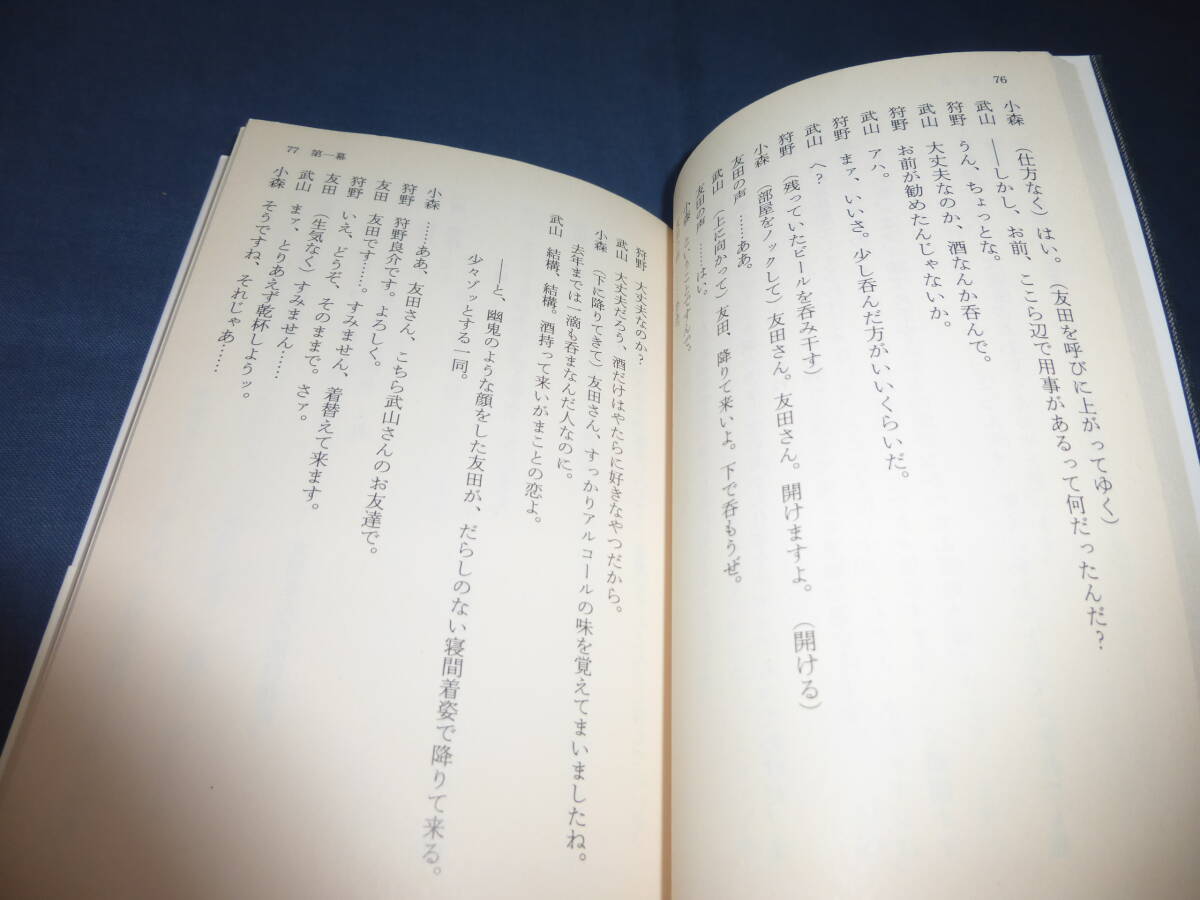 76
小森　（仕方なく）はい。　（友田を呼びに上がってゆく）
武山　――しかし、お前、ここら辺で用事があるって何だったんだ？
狩野　うん、ちょっとな。
武山　大丈夫なのか、酒なんか呑んで。
狩野　お前が勧めたんじゃないか。
武山　アハ。
狩野　まァ、いいさ。少し呑んだ方がいいくらいだ。
武山　へ？
狩野　（残っていたビールを呑み干す）
小森　（部屋をノックして）友田さん。友田さん。開けますよ。　（開ける）
友田の声　……ああ。
武山　（上に向かって）友田、降りて来いよ。下で呑もうぜ。
友田の声　……はい。
77　第一幕
狩野　大丈夫なのか？
武山　大丈夫だろう、酒だけはやたらに好きなやつだから。
小森　（下に降りてきて）友田さん、すっかりアルコールの味を覚えてまいましたね。
去年までは一滴も呑まなんだ人なのに。
武山　結構、結構。酒持って来いがまことの恋よ。
――と、幽鬼のような顔をした友田が、だらしのない寝間着姿で降りて来る。
少々ゾッとする一同。
小森　……ああ、友田さん、こちら武山さんのお友達で。
狩野　狩野良介です。よろしく。
友田　友田です……。すみません、着替えて来ます。
狩野　いえ、どうぞ、そのままで。さァ。
友田　（生気なく）すみません……
武山　まァ、とりあえず乾杯しようッ。
小森　そうですね、それじゃあ……